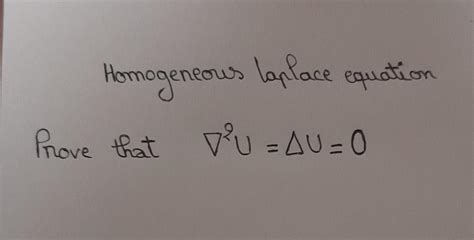 Homogeneous laplace equation
Prove that ∇²U = ΔU = 0